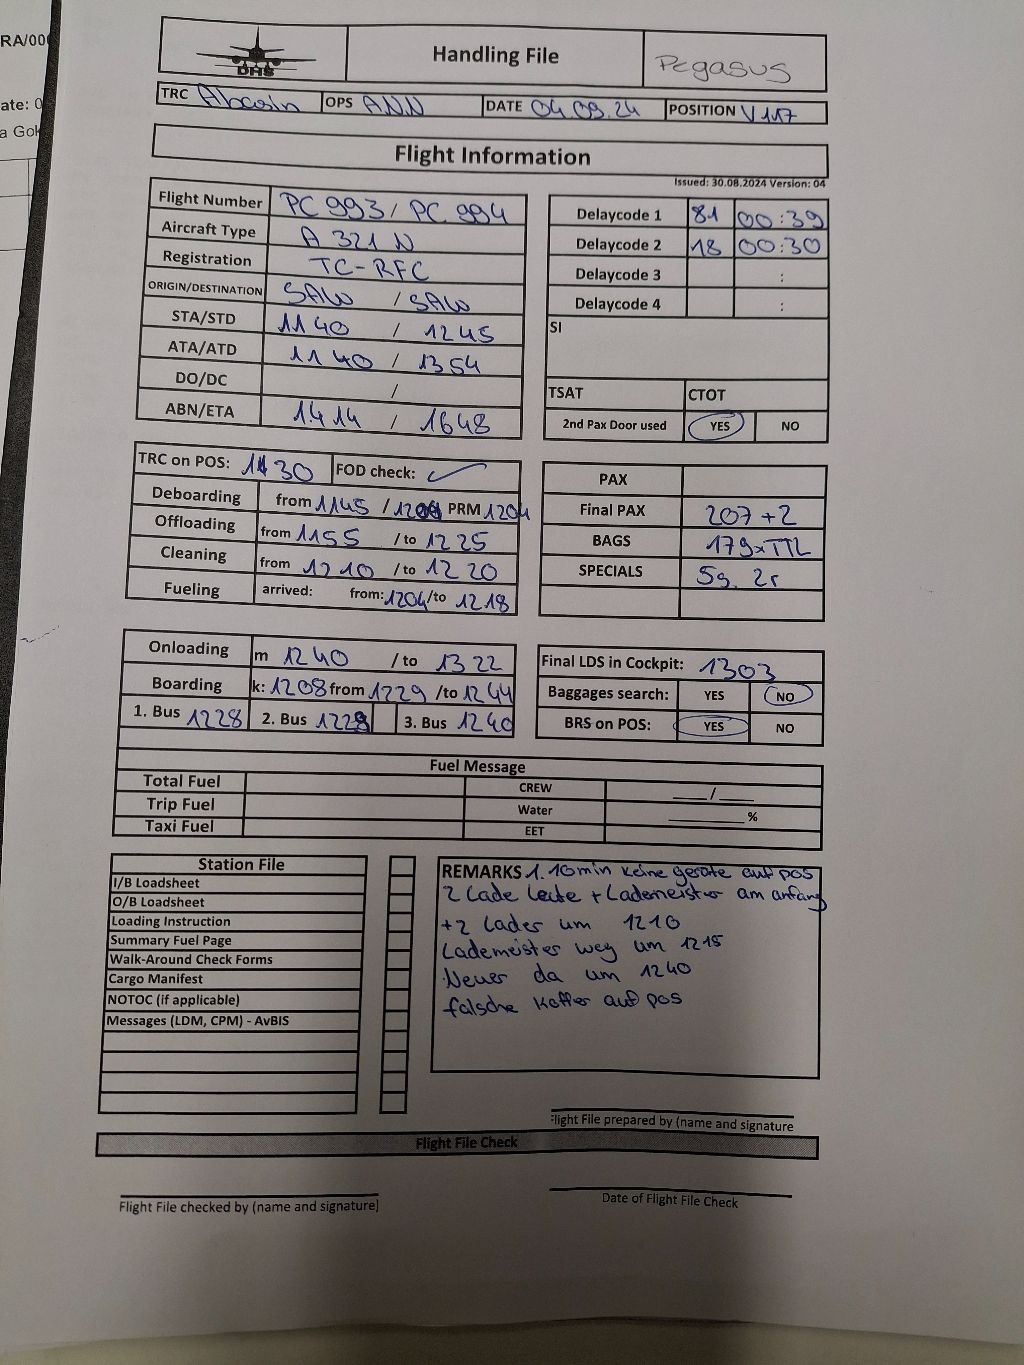 RA/00
ate: 0
a Gok
DHS
Handling File
Pegasus
TRC OPS ANN DATE 04.09.24 POSITION V117
Flight Information
Issued: 30.08.2024 Version: 04
Flight Number PC 993 / PC 994
Aircraft Type A 321 N
Registration TC-RFC
ORIGIN/DESTINATION SAW / SAW
STA/STD 1140 / 1245
ATA/ATD 1140 / 1354
DO/DC /
ABN/ETA 1414 / 1648
Delaycode 1 81 00:39
Delaycode 2 18 00:30
Delaycode 3 :
Delaycode 4 :
SI
TSAT CTOT
2nd Pax Door used YES NO
TRC on POS: 1130 FOD check: ✓
Deboarding from 1145 / PRM 1204
Offloading from 1155 /to 1225
Cleaning from 1210 /to 1220
Fueling arrived: from: 1204 /to 1218
PAX
Final PAX 207 +2
BAGS 179xTTL
SPECIALS 5g. 2r
Onloading m 1240 /to 1322
Boarding k: 1208 from 1229 /to 1244
1. Bus 1228 2. Bus 1228 3. Bus 1240
Final LDS in Cockpit: 1303
Baggages search: YES NO
BRS on POS: YES NO
Fuel Message
Total Fuel CREW ___/___
Trip Fuel Water ________%
Taxi Fuel EET
Station File
I/B Loadsheet
O/B Loadsheet
Loading Instruction
Summary Fuel Page
Walk-Around Check Forms
Cargo Manifest
NOTOC (if applicable)
Messages (LDM, CPM) - AvBIS
REMARKS 1. 10min keine geräte auf pos
2 Lade Leute + Lademeister am anfang
+2 Lader um 1210
Lademeister weg um 1215
Neuer da um 1240
falsche Koffer auf pos
Flight File prepared by (name and signature
Flight File Check
Flight File checked by (name and signature)
Date of Flight File Check